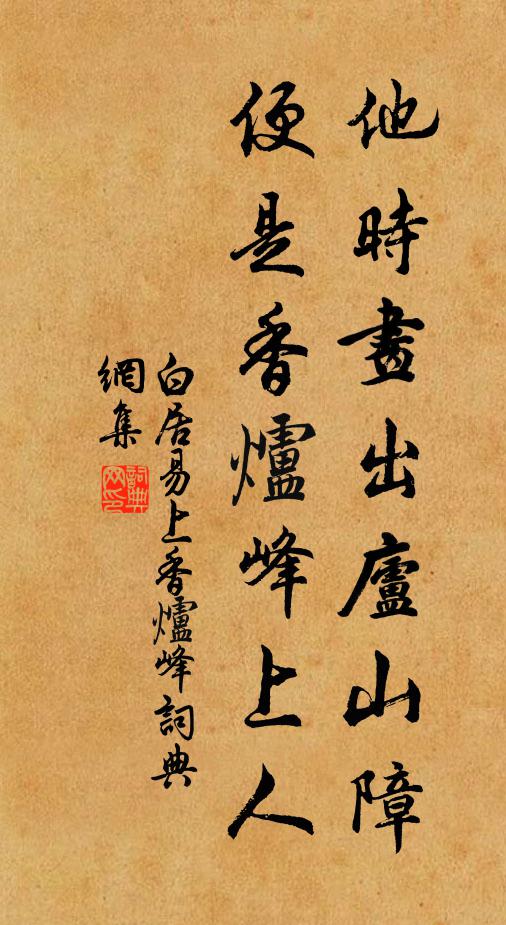 他時畫出廬山障
便是香爐峰上人
白居易上香爐峰詞典
網集
詞典
网印